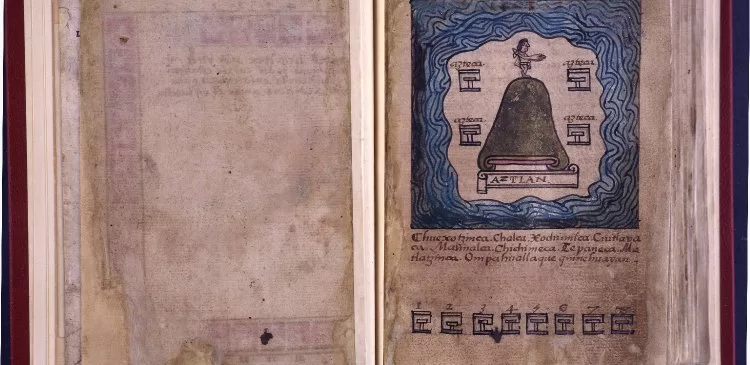 azteca. azteca.
azteca. azteca.
AZTLAN
Chuexotzinca. Chalca. Xochimilca. Cuitlava
ca. Malinalca. Chichimeca. Tepaneca. Ma
tlatzinca. Ompahuallaque quinehuayan.
1 2 3 4 5 6 7 8